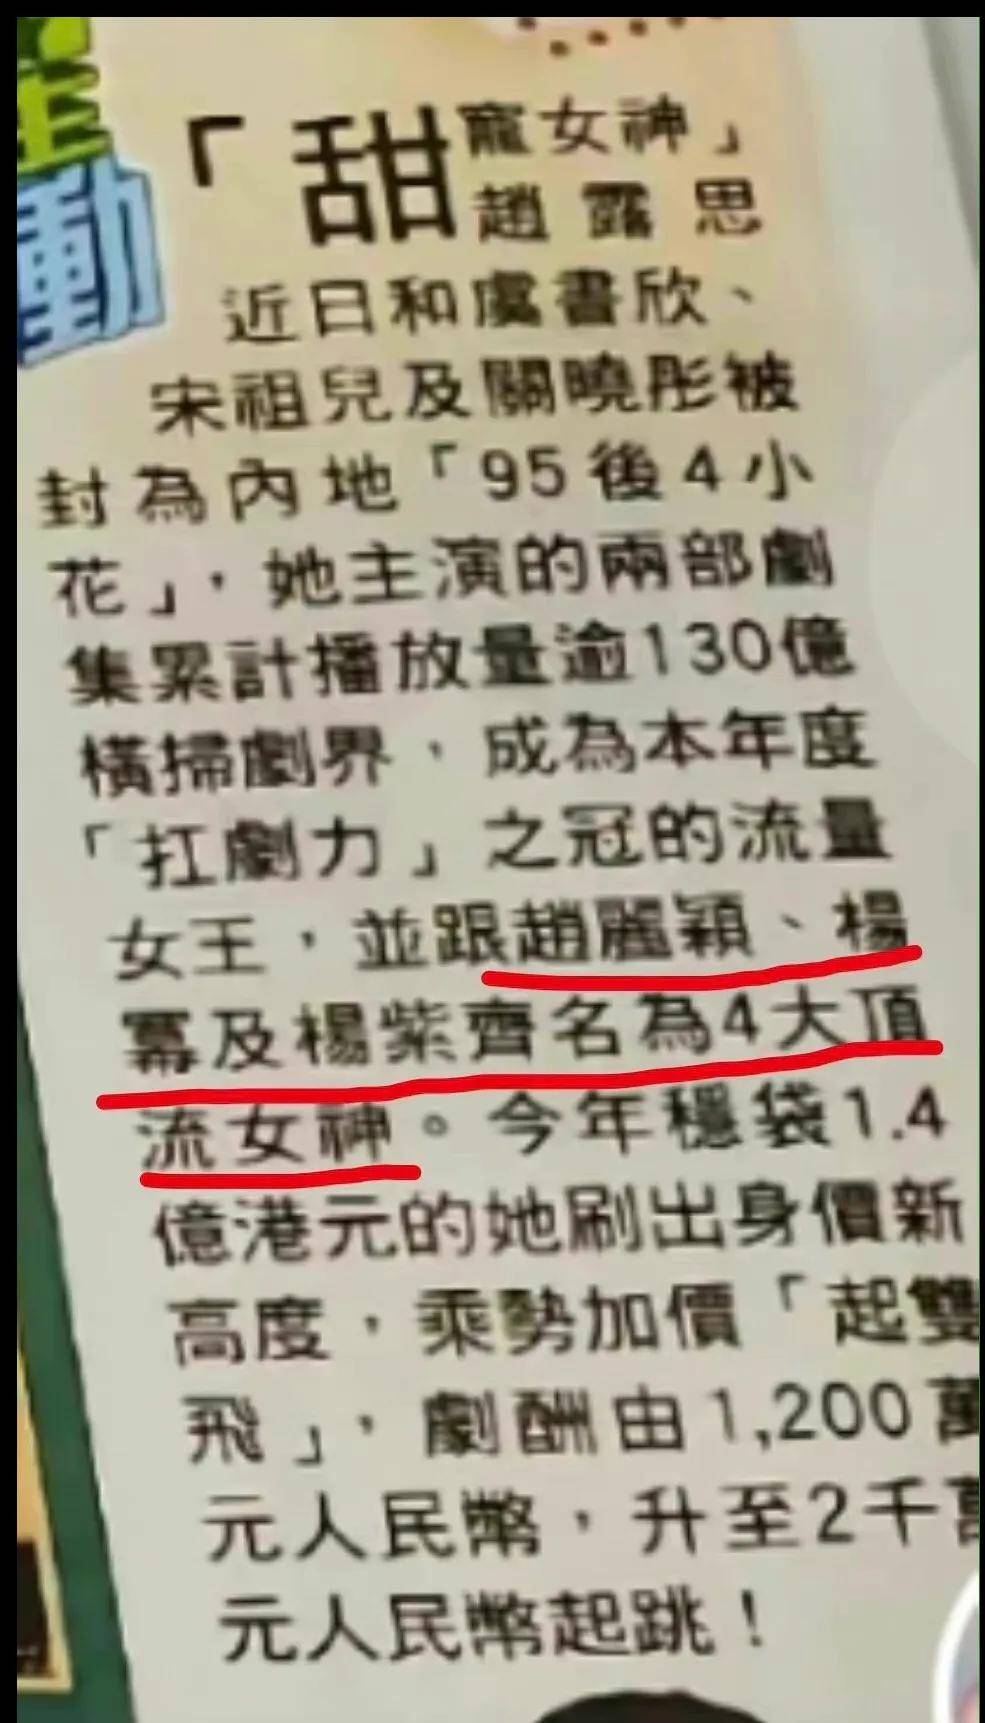 動
「甜寵女神」
趙露思
近日和虞書欣、
宋祖兒及關曉彤被
封為內地「95後4小
花」，她主演的兩部劇
集累計播放量逾130億
橫掃劇界，成為本年度
「扛劇力」之冠的流量
女王，並跟趙麗穎、楊
冪及楊紫齊名為4大頂
流女神。今年穩袋1.4
億港元的她刷出身價新
高度，乘勢加價「起雙
飛」，劇酬由1,200萬
元人民幣，升至2千萬
元人民幣起跳！